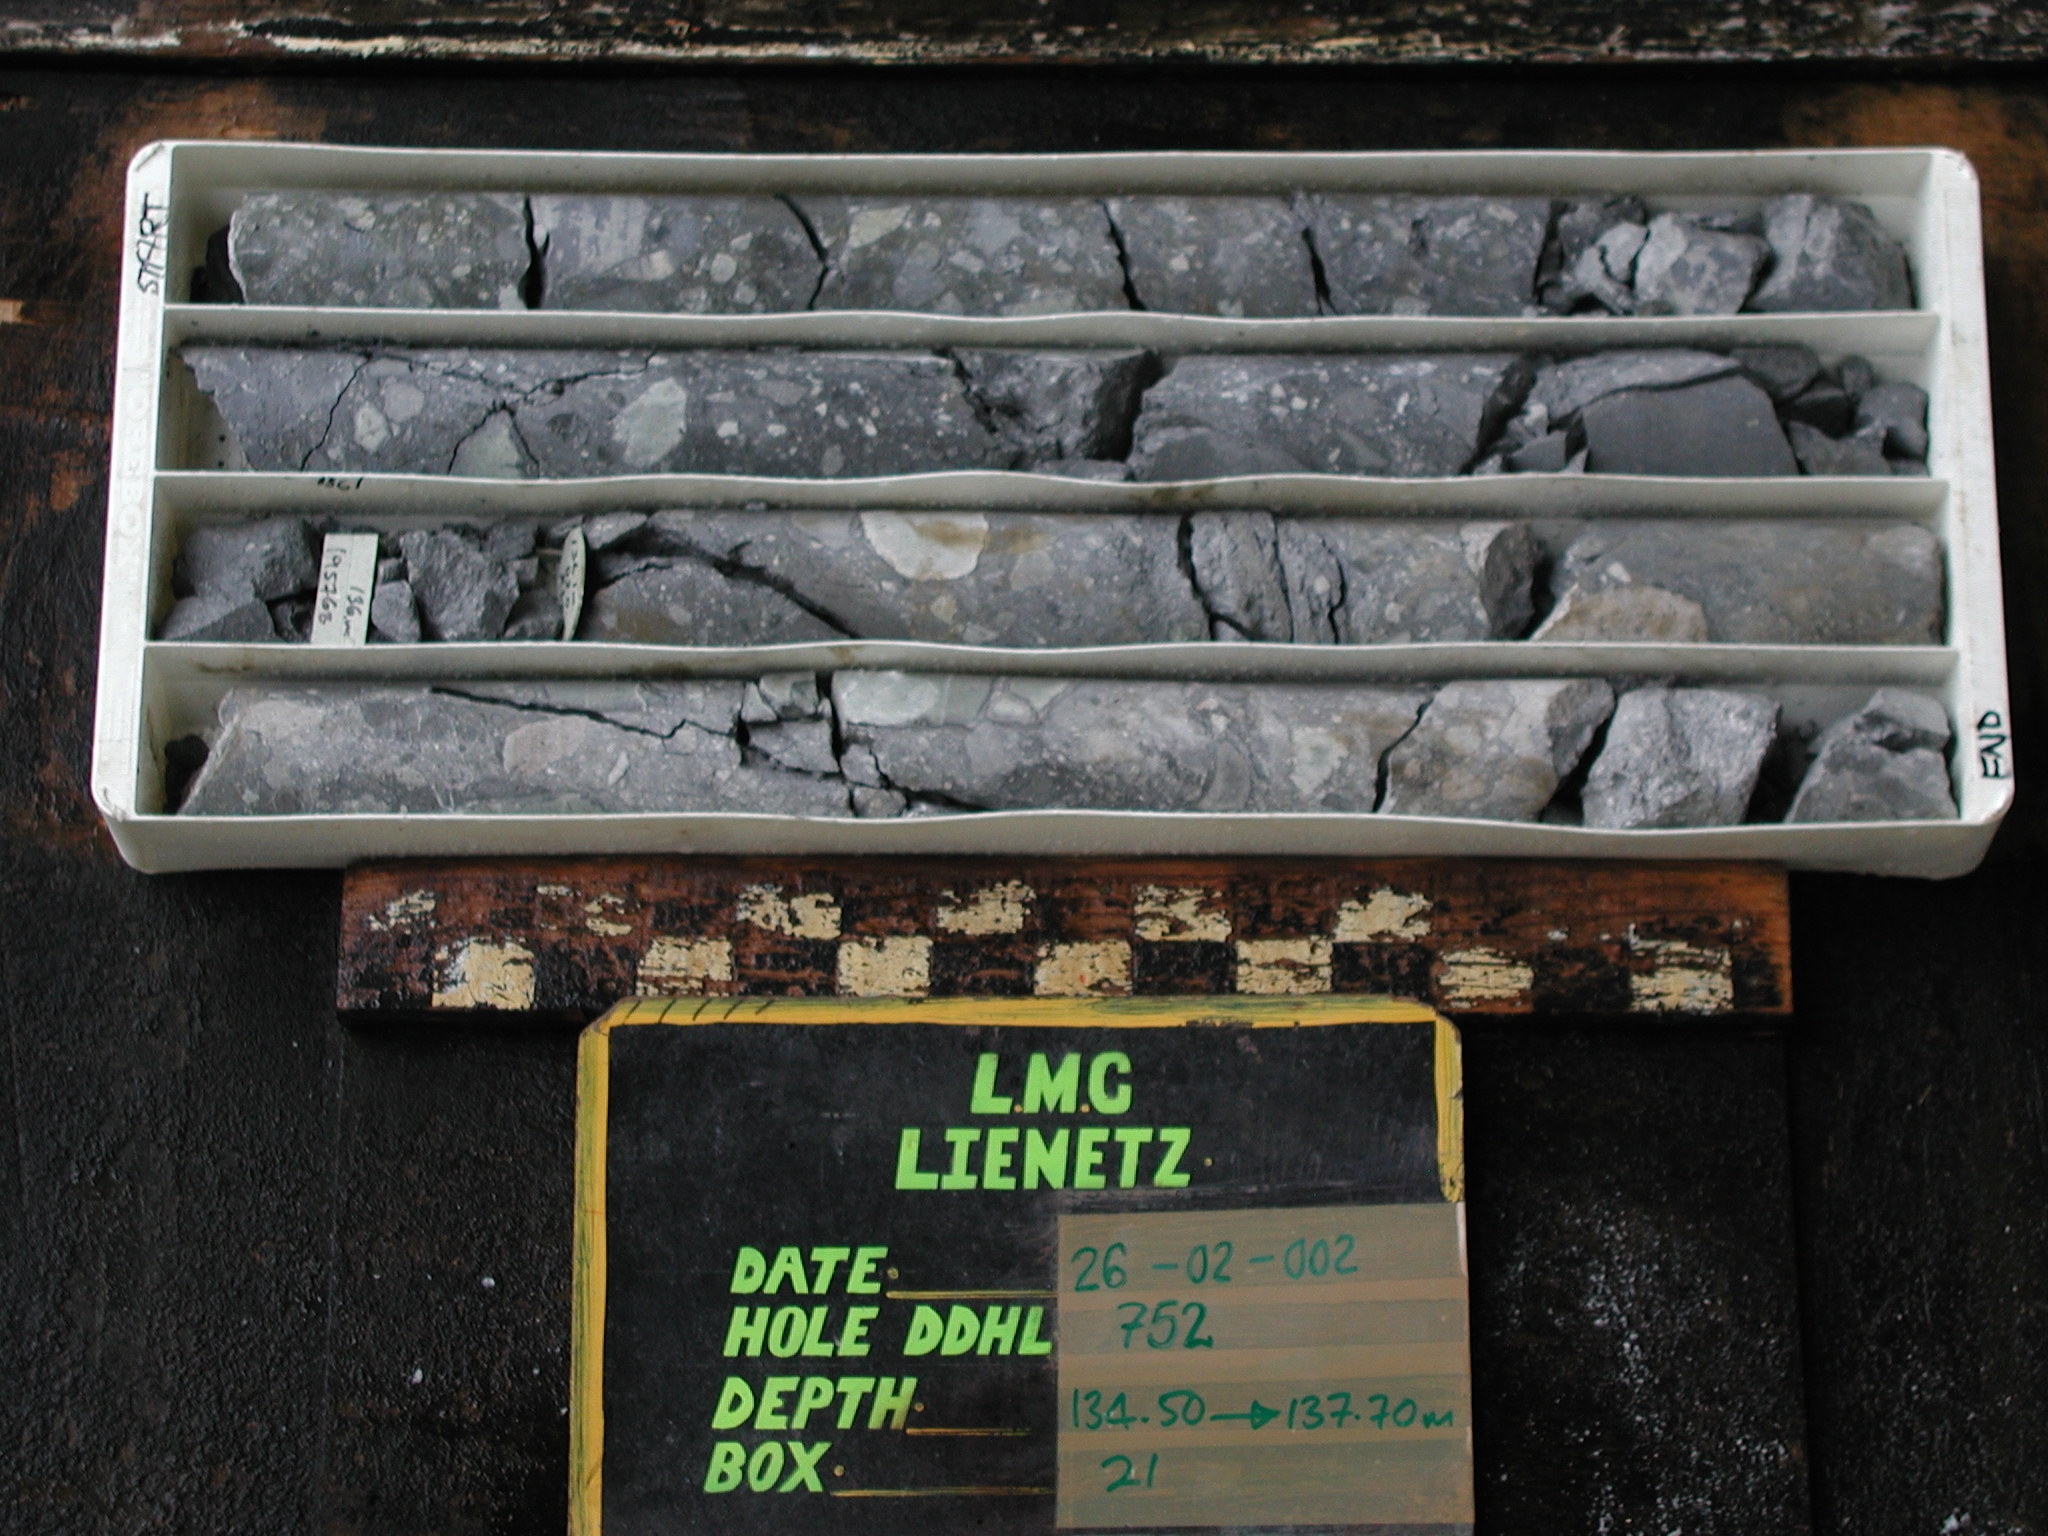 START
136m
195768
END
L.M.C
LIENETZ
DATE. 26-02-002
HOLE DDHL 752
DEPTH. 134.50→137.70m
BOX. 21